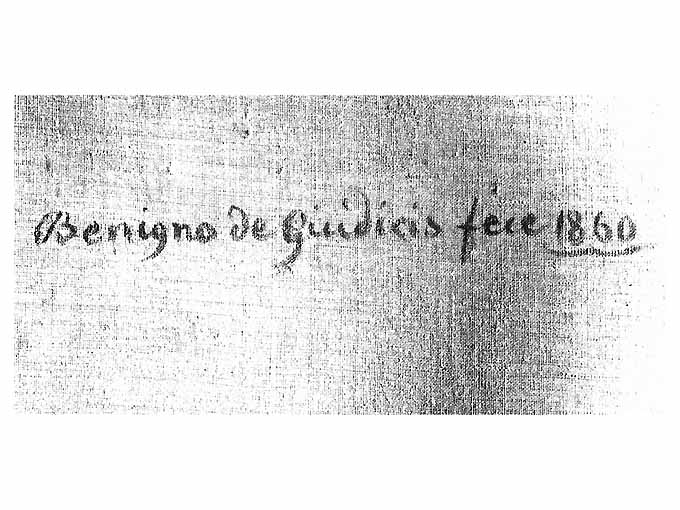 Benigno de Giudicis fece 1860